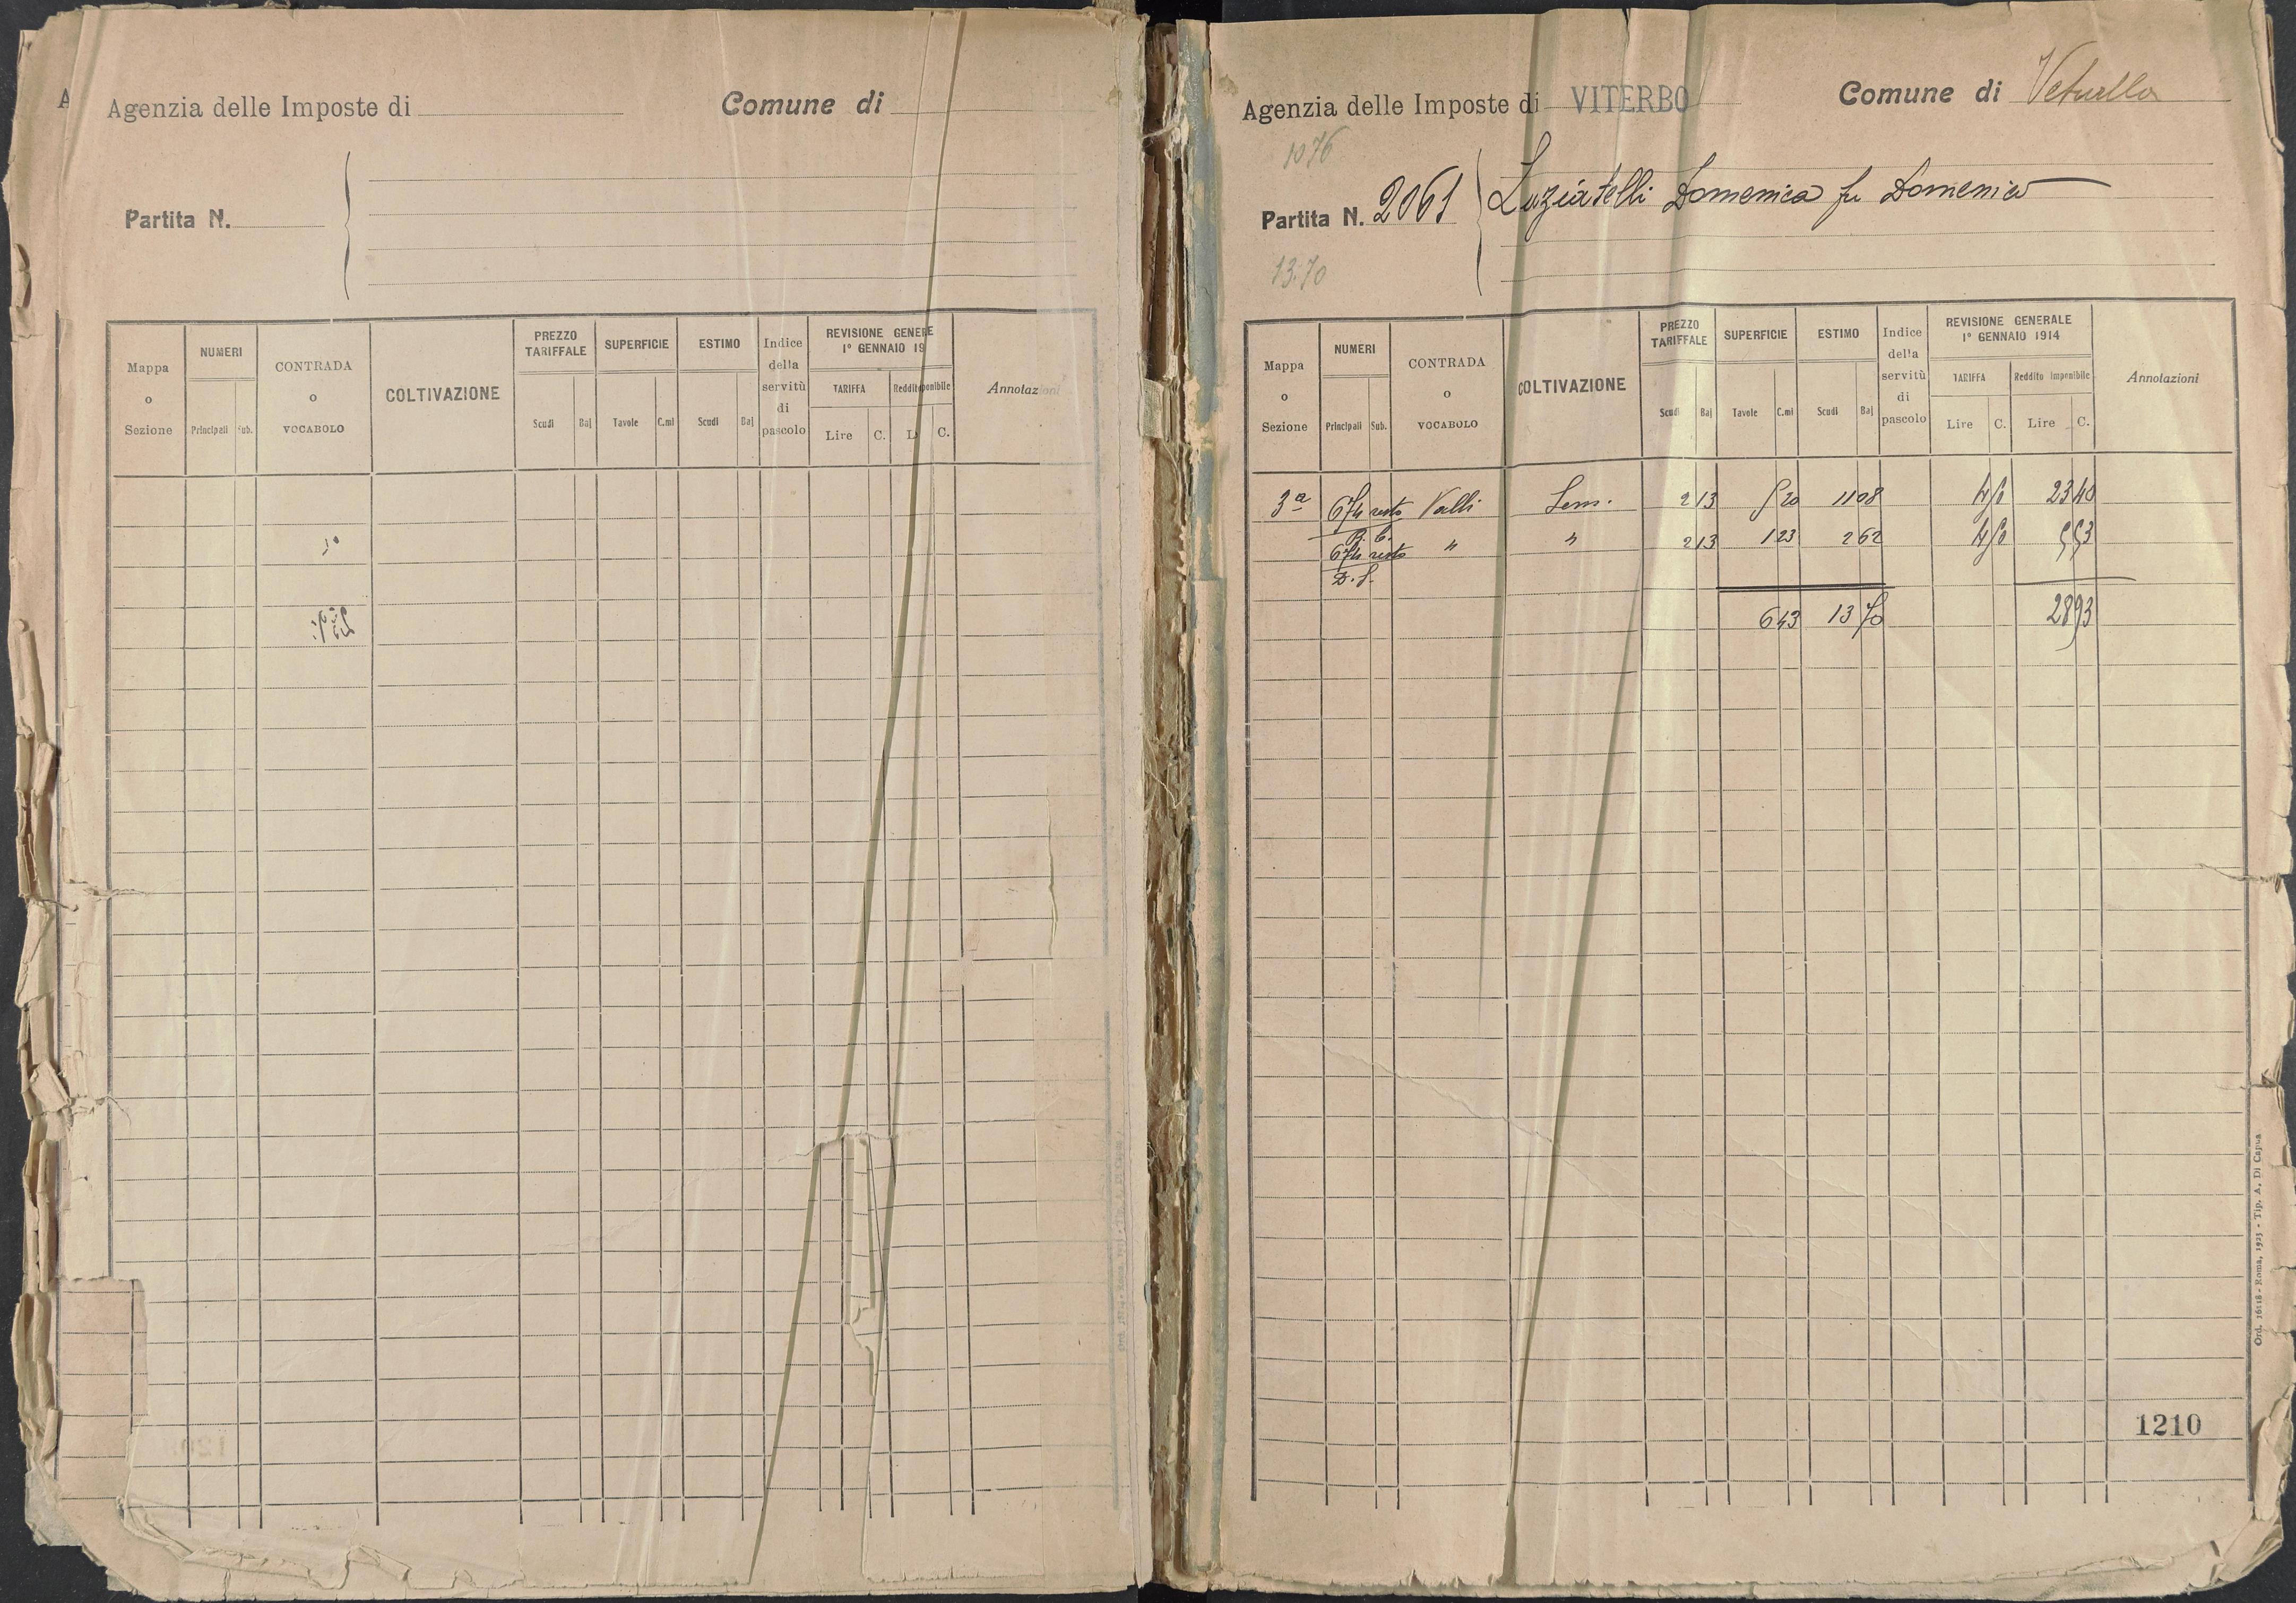 Agenzia delle Imposte di
Comune di
Partita N.
Mappa o Sezione
NUMERI
Principali
Sub.
CONTRADA o VOCABOLO
COLTIVAZIONE
PREZZO TARIFFALE
Scudi
Baj
SUPERFICIE
Tavole
C.mi
ESTIMO
Scudi
Baj
Indice della servitù di pascolo
REVISIONE GENERE
1° GENNAIO 19
TARIFFA
Lire
C.
L
C.
Agenzia delle Imposte di VITERBO
Comune di Vetralla
1076
Partita N. 2061
Luziatelli Domenica fu Domenico
13.70
Mappa o Sezione
NUMERI
Principali
Sub.
CONTRADA o VOCABOLO
COLTIVAZIONE
PREZZO TARIFFALE
Scudi
Baj
SUPERFICIE
Tavole
C.mi
ESTIMO
Scudi
Baj
Indice della servitù di pascolo
REVISIONE GENERALE
1° GENNAIO 1914
TARIFFA
Lire
C.
Reddito imponibile
Lire
C.
Annotazioni
3ª 674 resto Valli Sem. 2 13 5 20 11 08 4 50 23 40
674 resto " " 2 13 1 23 2 62 4 50 5 53
6 43 13 70 28 93
1210
Ord. 16118 - Roma, 1923 - Tip. A. Di Capua